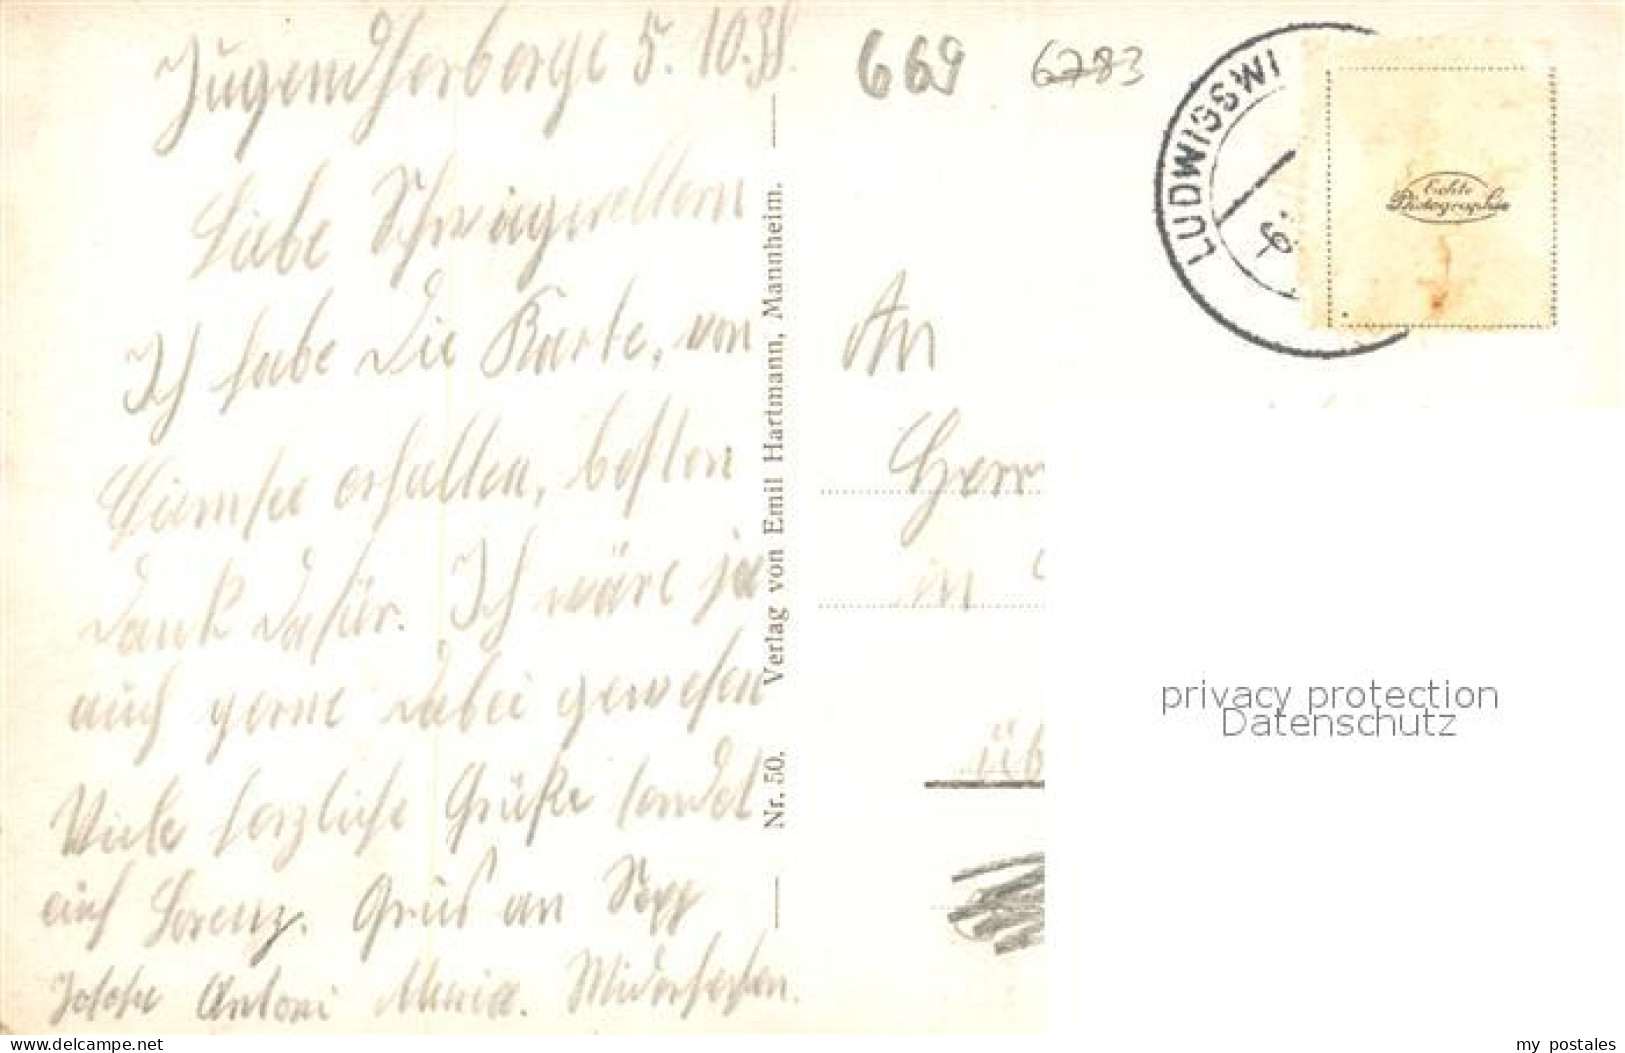 Jugendherberge 5.10.38.
Liebe Schwiegereltern
Ich habe die Karte, von
Chiemsee erhalten, besten
Dank dafür. Ich wäre ja
auch gerne dabei gewesen
Viele herzliche Grüße sendet
euch Lorenz. Gruß an Sepp
Antoni Maria. Wiedersehen.
Nr. 50. Verlag von Emil Hartmann, Mannheim.
669 6783
LUDWIGSWI
Echte
Photographie
An
Herr
in
privacy protection
Datenschutz
delcampe.net
my_postales